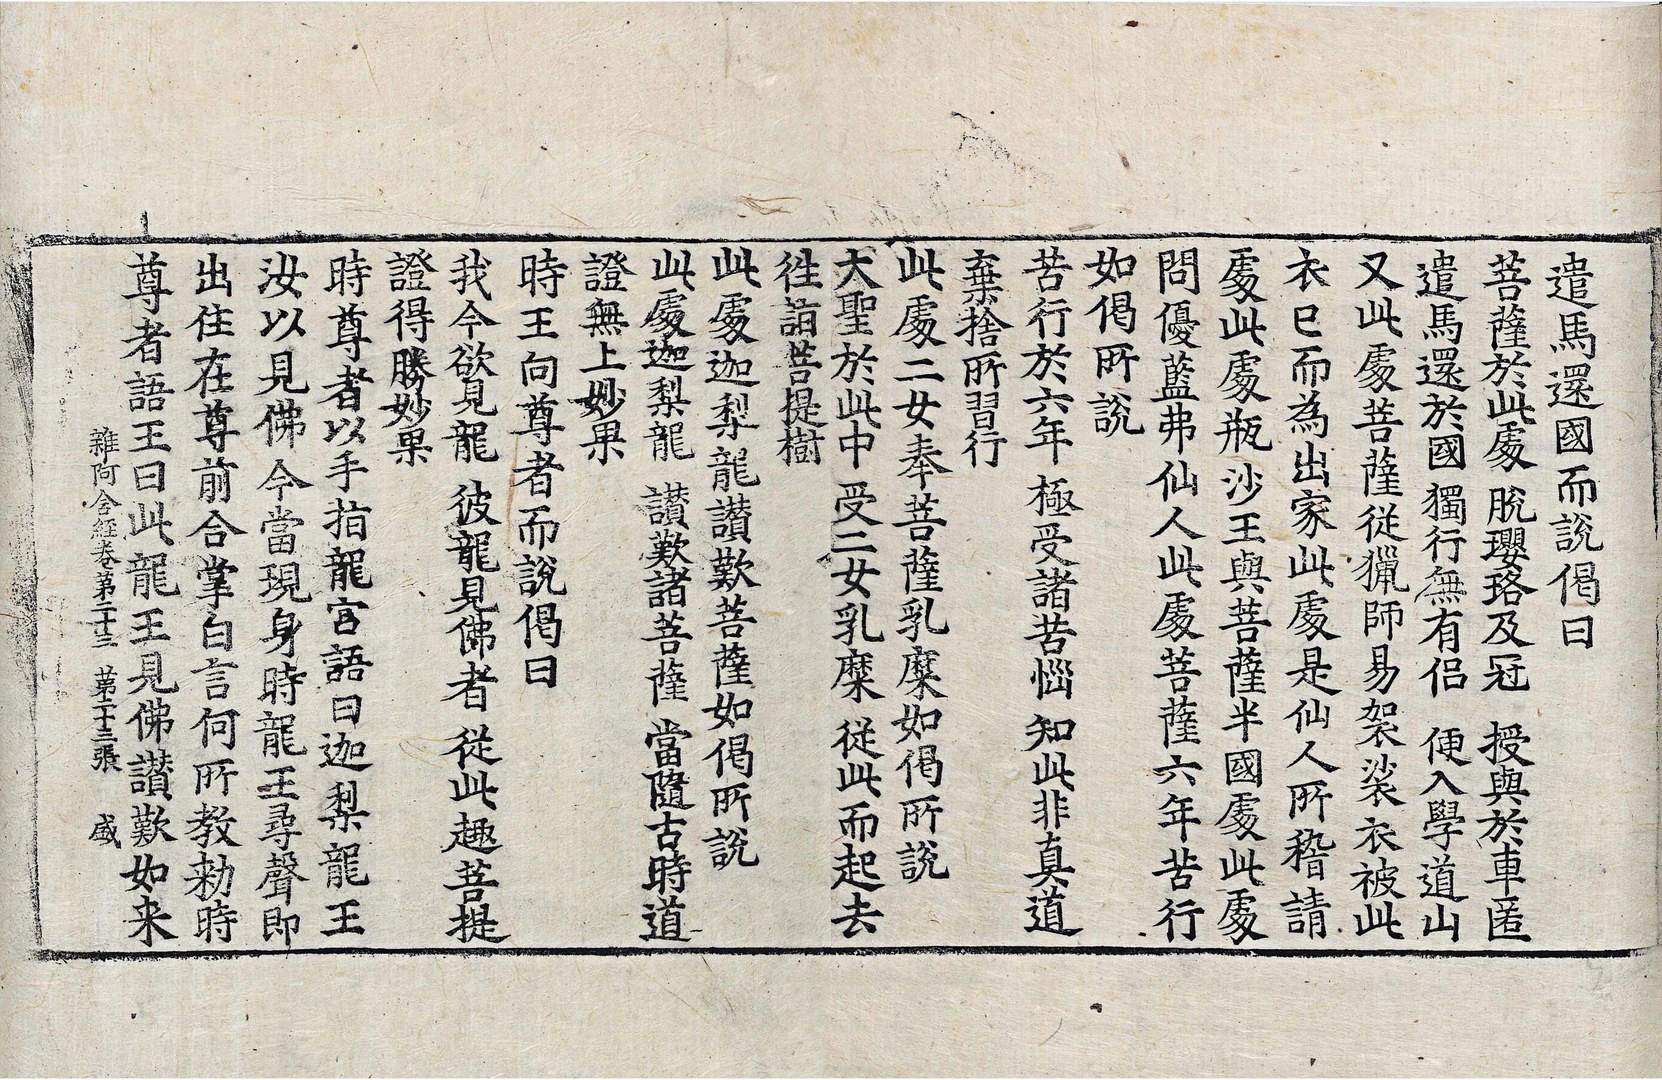 遣馬還國而說偈曰
菩薩於此處 脫瓔珞及冠 授與於車匿
遣馬還於國 獨行無有侶 便入學道山
又此處菩薩從獵師易袈裟衣被此
衣已而為出家此處是仙人所稽請
處此處瓶沙王與菩薩半國處此處
問優藍弗仙人此處菩薩六年苦行
如偈所說
苦行於六年 極受諸苦惱 知此非真道
棄捨所習行
此處二女奉菩薩乳糜如偈所說
大聖於此中 受二女乳糜 從此而起去
徃詣菩提樹
此處迦梨龍讃歎菩薩如偈所說
此處迦梨龍 讃歎諸菩薩 當隨古時道
證無上妙果
時王向尊者而說偈曰
我今欲見龍 彼龍見佛者 從此趣菩提
證得勝妙果
時尊者以手指龍宮語曰迦梨龍王
汝以見佛今當現身時龍王尋聲即
出住在尊前合掌白言何所教勑時
尊者語王曰此龍王見佛讃歎如来
雜阿含經卷第二十三 第二十三張 盛